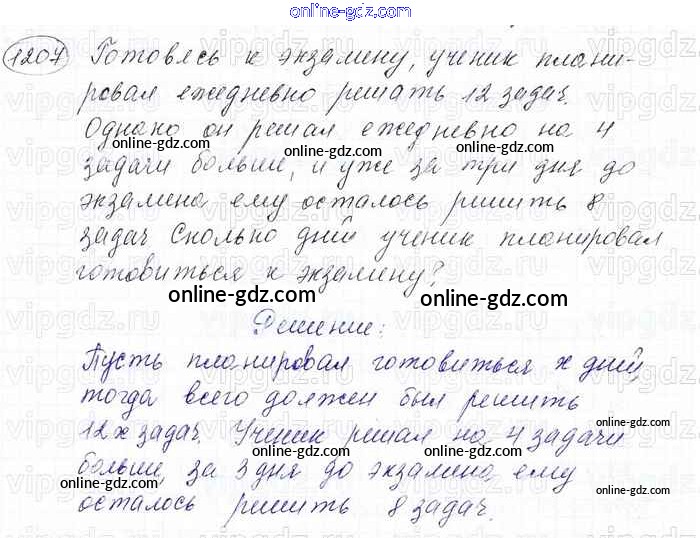 online-gdz.com
1207 Готовясь к экзамену, ученик плани-
ровал ежедневно решать 12 задач.
online-gdz.com
Однако он решал ежедневно на 4
online-gdz.com online-gdz.com
задачи больше, и уже за три дня до
экзамена ему осталось решить 8
online-gdz.com online-gdz.com
задач Сколько дней ученик планировал
готовиться к экзамену?
online-gdz.com online-gdz.com
Решение:
Пусть планировал готовиться x дней,
тогда всего должен был решить
online-gdz.com
12x задач. Ученик решал на 4 задачи
online-gdz.com
больше, за 3 дня до экзамена ему
online-gdz.com
осталось решить 8 задач.
online-gdz.com